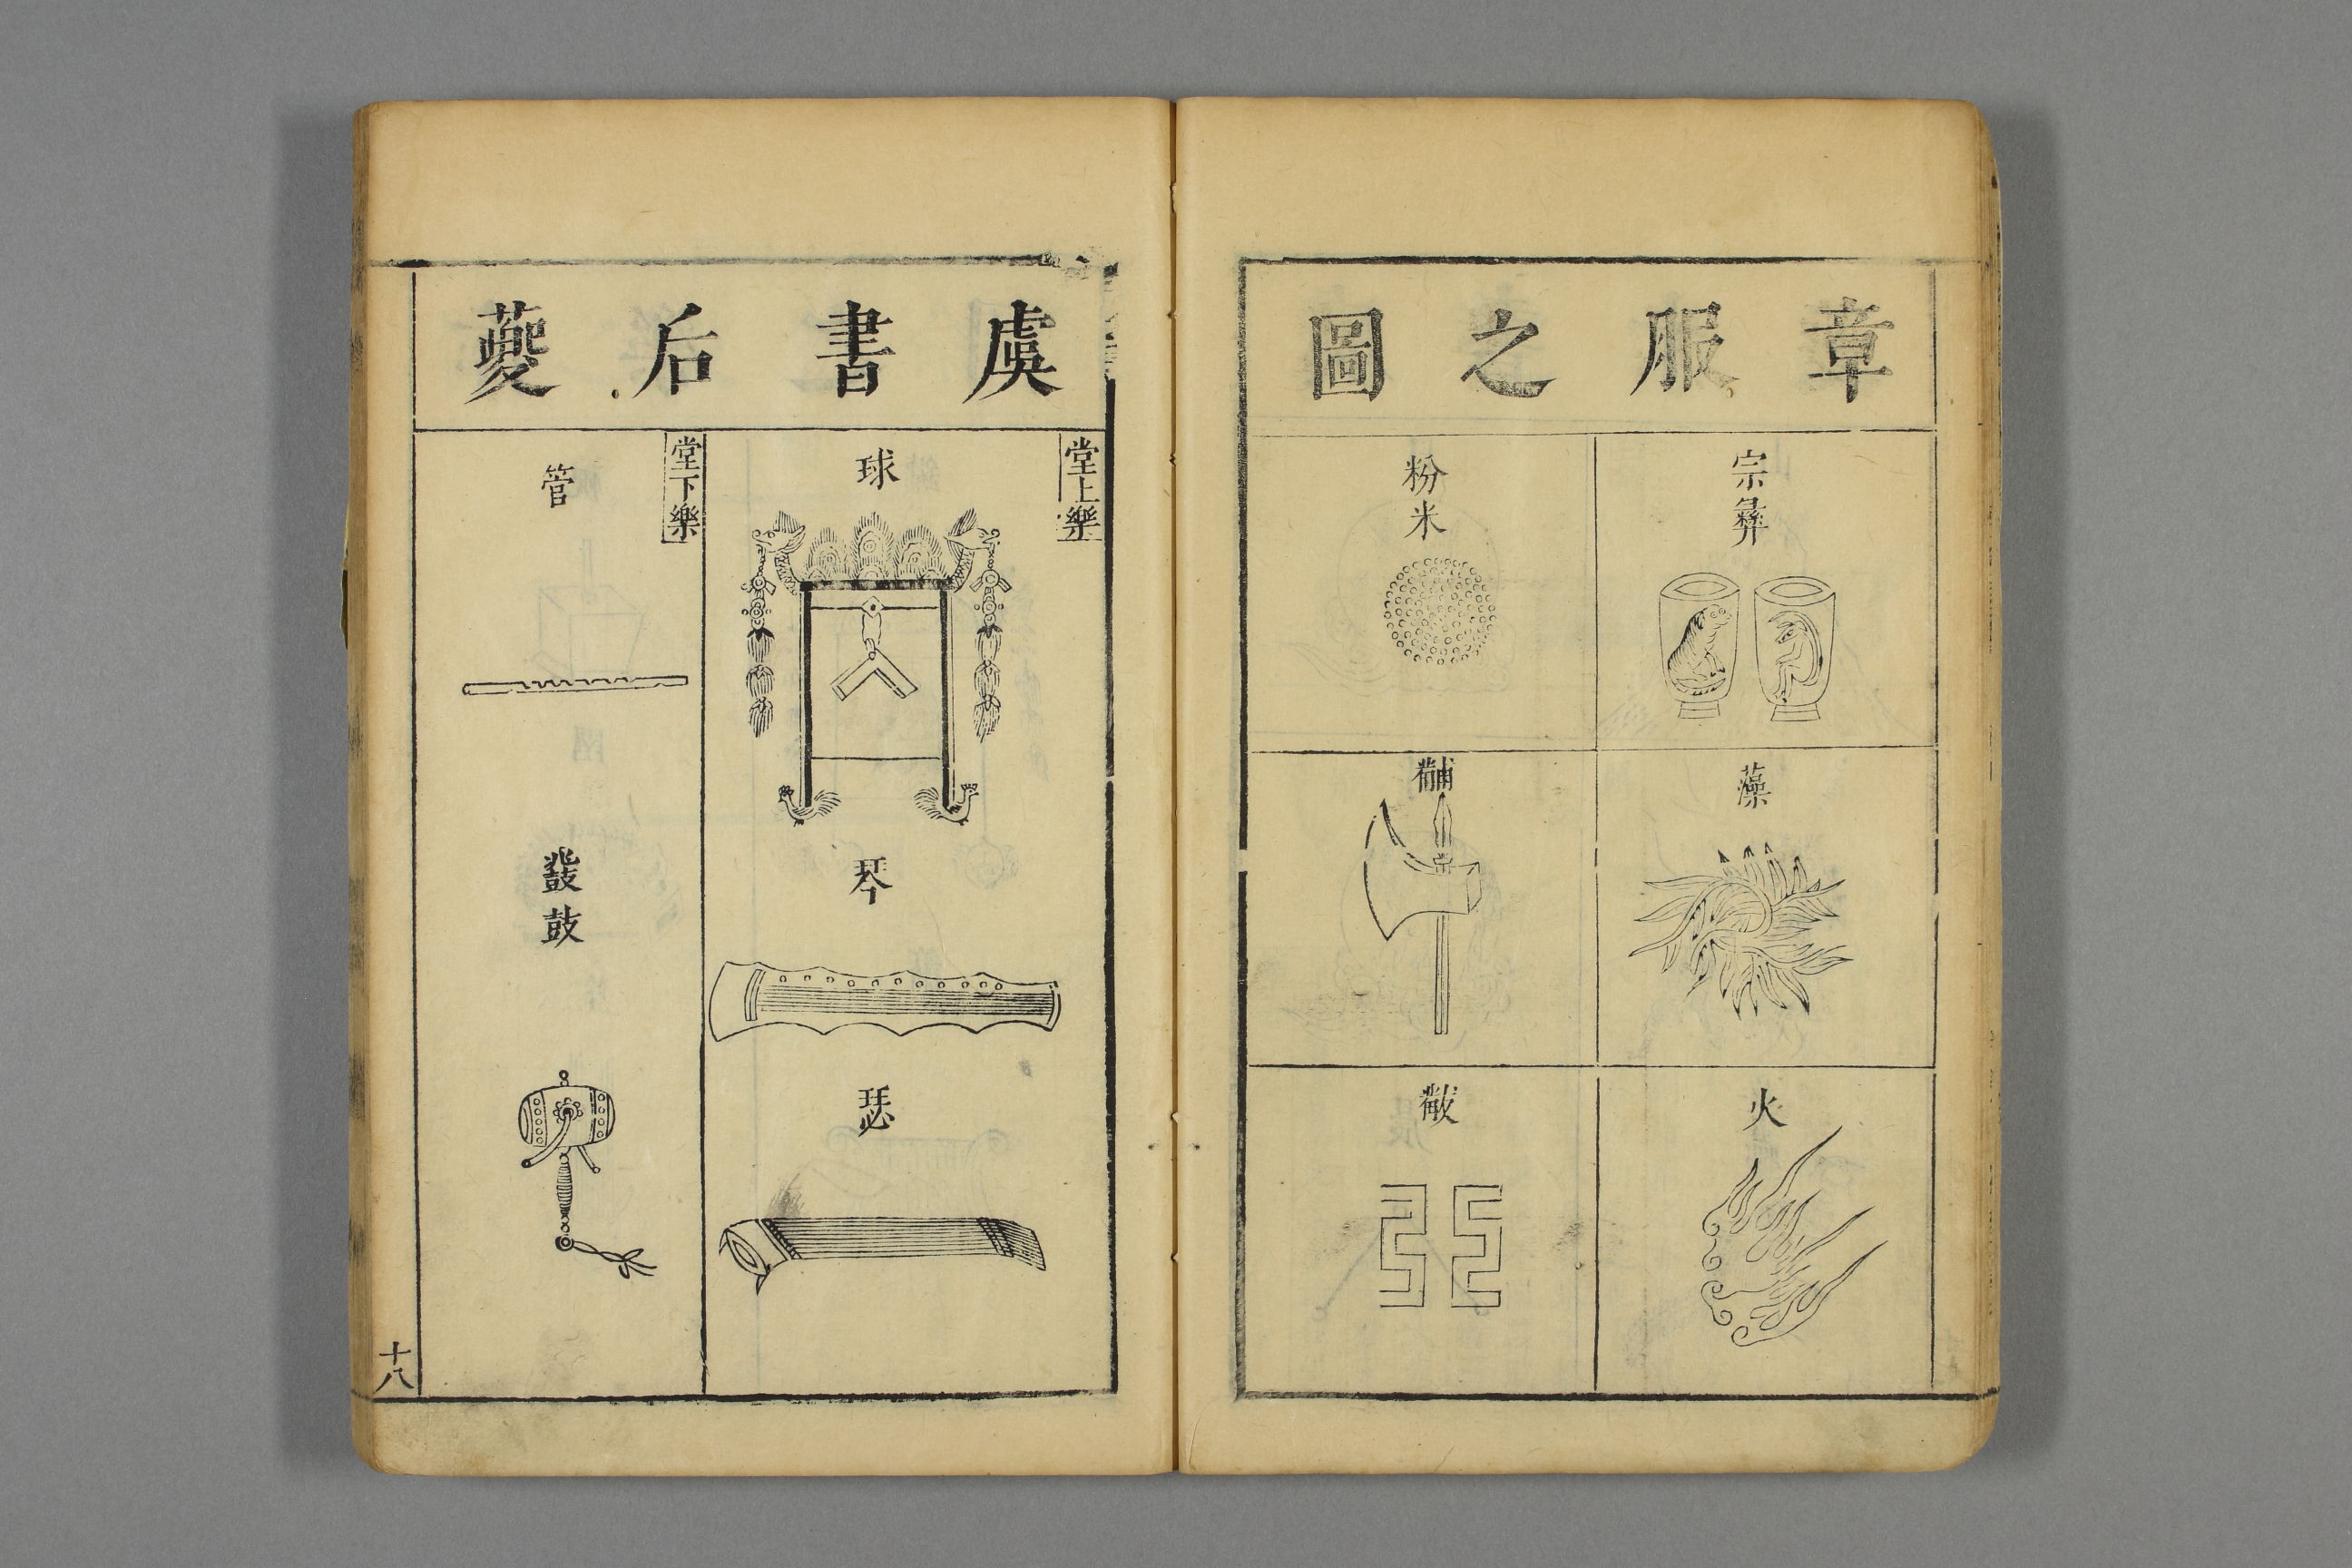 章服之圖
宗彝
藻
火
粉米
黼
黻
虞書后夔
堂上樂
球
琴
瑟
堂下樂
管
鼗鼓
十八